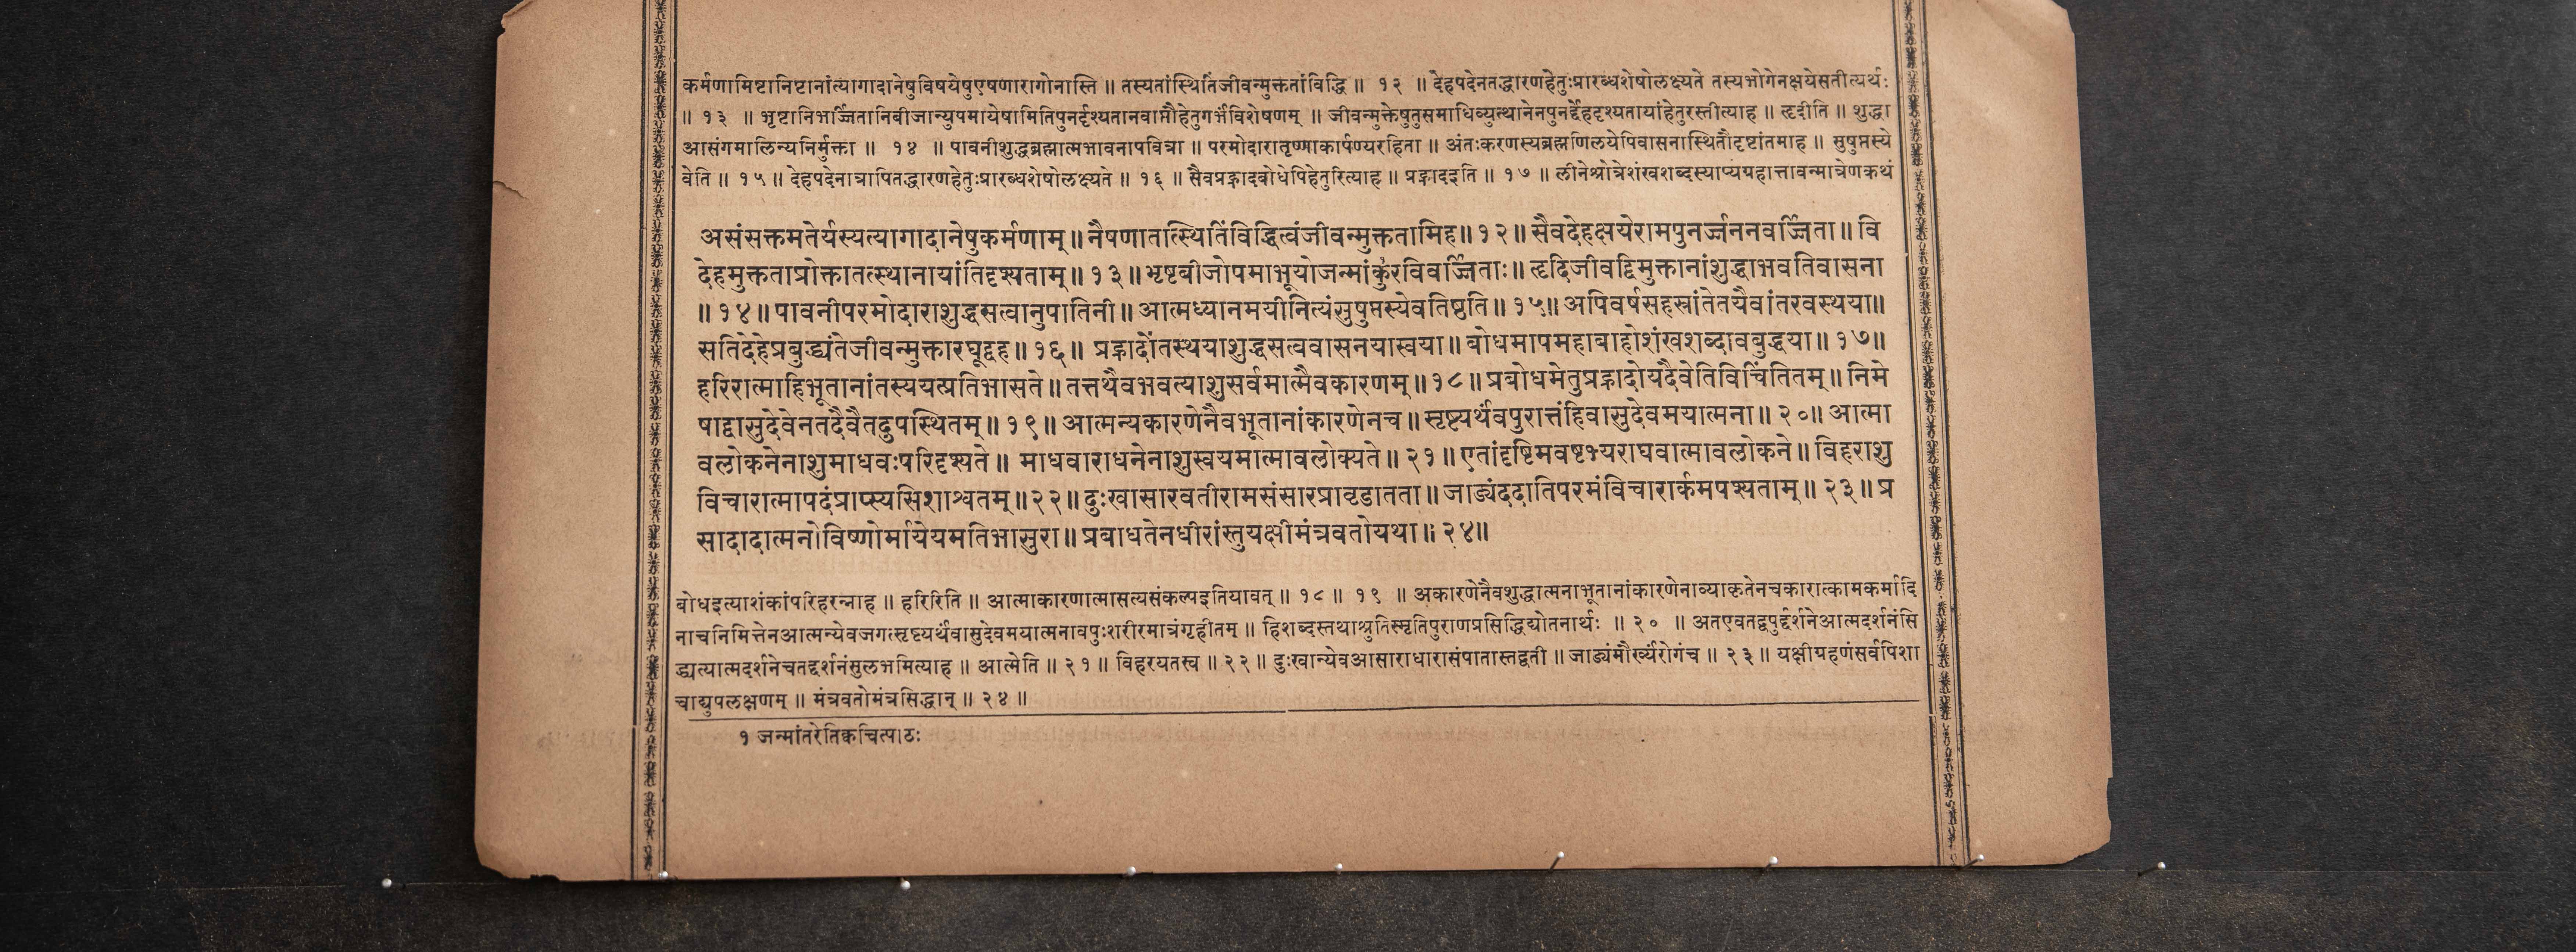 कर्मणामिष्टानिष्टानांत्यागादानेषुविषयेषुएषणारागोनास्ति ॥ तस्यतांस्थितिंजीवन्मुक्ततांविद्धि ॥ १२ ॥ देहपदेनतद्धारणहेतुःप्रारब्धशेषोलक्ष्यते तस्यभोगेनक्षयेसतीत्यर्थः
॥ १३ ॥ भृष्टानिभर्ज्जितानिबीजान्युपमायेषामितिपुनर्दृश्यतानवाप्तौहेतुगर्भंविशेषणम् ॥ जीवन्मुक्तेषुतुसमाधिव्युत्थानेनपुनर्द्देहदृश्यतायांहेतुरस्तीत्याह ॥ हृदीति ॥ शुद्धा
आसंगमालिन्यनिर्मुक्ता ॥ १४ ॥ पावनीशुद्धब्रह्मात्मभावनापवित्रा ॥ परमोदारातृष्णाकार्पण्यरहिता ॥ अंतःकरणस्यब्रह्मणिलयेपिवासनास्थितौदृष्टांतमाह ॥ सुषुप्तस्ये
वेति ॥ १५ ॥ देहपदेनात्रापितद्धारणहेतुःप्रारब्धशेषोलक्ष्यते ॥ १६ ॥ सैवप्रह्लादबोधेपिहेतुरित्याह ॥ प्रह्लादइति ॥ १७ ॥ लीनेश्रोत्रेशंखशब्दस्याप्यग्रहात्तावन्मात्रेणकथं
असंसक्तमतेर्यस्यत्यागादानेषुकर्मणाम् ॥ नैषणातत्स्थितिंविद्धित्वंजीवन्मुक्ततामिह ॥ १२ ॥ सैवदेहक्षयेरामपुनर्ज्जननवर्ज्जिता ॥ वि
देहमुक्तताप्रोक्तातत्स्थानायांतिदृश्यताम् ॥ १३ ॥ भृष्टबीजोपमाभूयोजन्मांकुरविवर्ज्जिताः ॥ हृदिजीवद्विमुक्तानांशुद्धाभवतिवासना
॥ १४ ॥ पावनीपरमोदाराशुद्धसत्वानुपातिनी ॥ आत्मध्यानमयीनित्यंसुषुप्तस्येवतिष्ठति ॥ १५ ॥ अपिवर्षसहस्रांतेतयैवांतरवस्थया ॥
सतिदेहेप्रबुद्ध्यंतेजीवन्मुक्तारघूद्वह ॥ १६ ॥ प्रह्लादोंतस्थयाशुद्धसत्ववासनयास्वया ॥ बोधमापमहाबाहोशंखशब्दावबुद्धया ॥ १७ ॥
हरिरात्माहिभूतानांतस्ययत्प्रतिभासते ॥ तत्तथैवभवत्याशुसर्वमात्मैवकारणम् ॥ १८ ॥ प्रबोधमेतुप्रह्लादोयदैवेतिविचिंतितम् ॥ निमे
षाद्वासुदेवेनतदैवैतदुपस्थितम् ॥ १९ ॥ आत्मन्यकारणेनैवभूतानांकारणेनच ॥ सृष्ट्यर्थंवपुरात्तंहिवासुदेवमयात्मना ॥ २० ॥ आत्मा
वलोकनेनाशुमाधवःपरिदृश्यते ॥ माधवाराधनेनाशुस्वयमात्मावलोक्यते ॥ २१ ॥ एतांदृष्टिमवष्टभ्यराघवात्मावलोकने ॥ विहराशु
विचारात्मापदंप्राप्स्यसिशाश्वतम् ॥ २२ ॥ दुःखासारवतीरामसंसारप्रावृडातता ॥ जाड्यंददातिपरमंविचारार्कमपश्यताम् ॥ २३ ॥ प्र
सादादात्मनोविष्णोर्मायेयमतिभासुरा ॥ प्रबाधतेनधीरांस्तुयक्षीमंत्रवतोयथा ॥ २४ ॥
बोधइत्याशंकांपरिहरन्नाह ॥ हरिरिति ॥ आत्माकारणात्मासत्यसंकल्पइतियावत् ॥ १८ ॥ १९ ॥ अकारणेनैवशुद्धात्मनाभूतानांकारणेनाव्याकृतेनचकारात्कामकर्मादि
नाचनिमित्तेनआत्मन्येवजगत्सृष्ट्यर्थंवासुदेवमयात्मनावपुःशरीरमात्रंगृहीतम् ॥ हिशब्दस्तथाश्रुतिस्मृतिपुराणप्रसिद्धिद्योतनार्थः ॥ २० ॥ अतएवतद्वपुर्द्दर्शनेआत्मदर्शनंसि
द्ध्यत्यात्मदर्शनेचतद्दर्शनंसुलभमित्याह ॥ आत्मेति ॥ २१ ॥ विहरयतस्व ॥ २२ ॥ दुःखान्येवआसाराधारासंपातास्तद्वती ॥ जाड्यंमौर्ख्यंरोगंच ॥ २३ ॥ यक्षीग्रहणंसर्वपिशा
चाद्युपलक्षणम् ॥ मंत्रवतोमंत्रसिद्धान् ॥ २४ ॥
१ जन्मांतरेतिक्वचित्पाठः